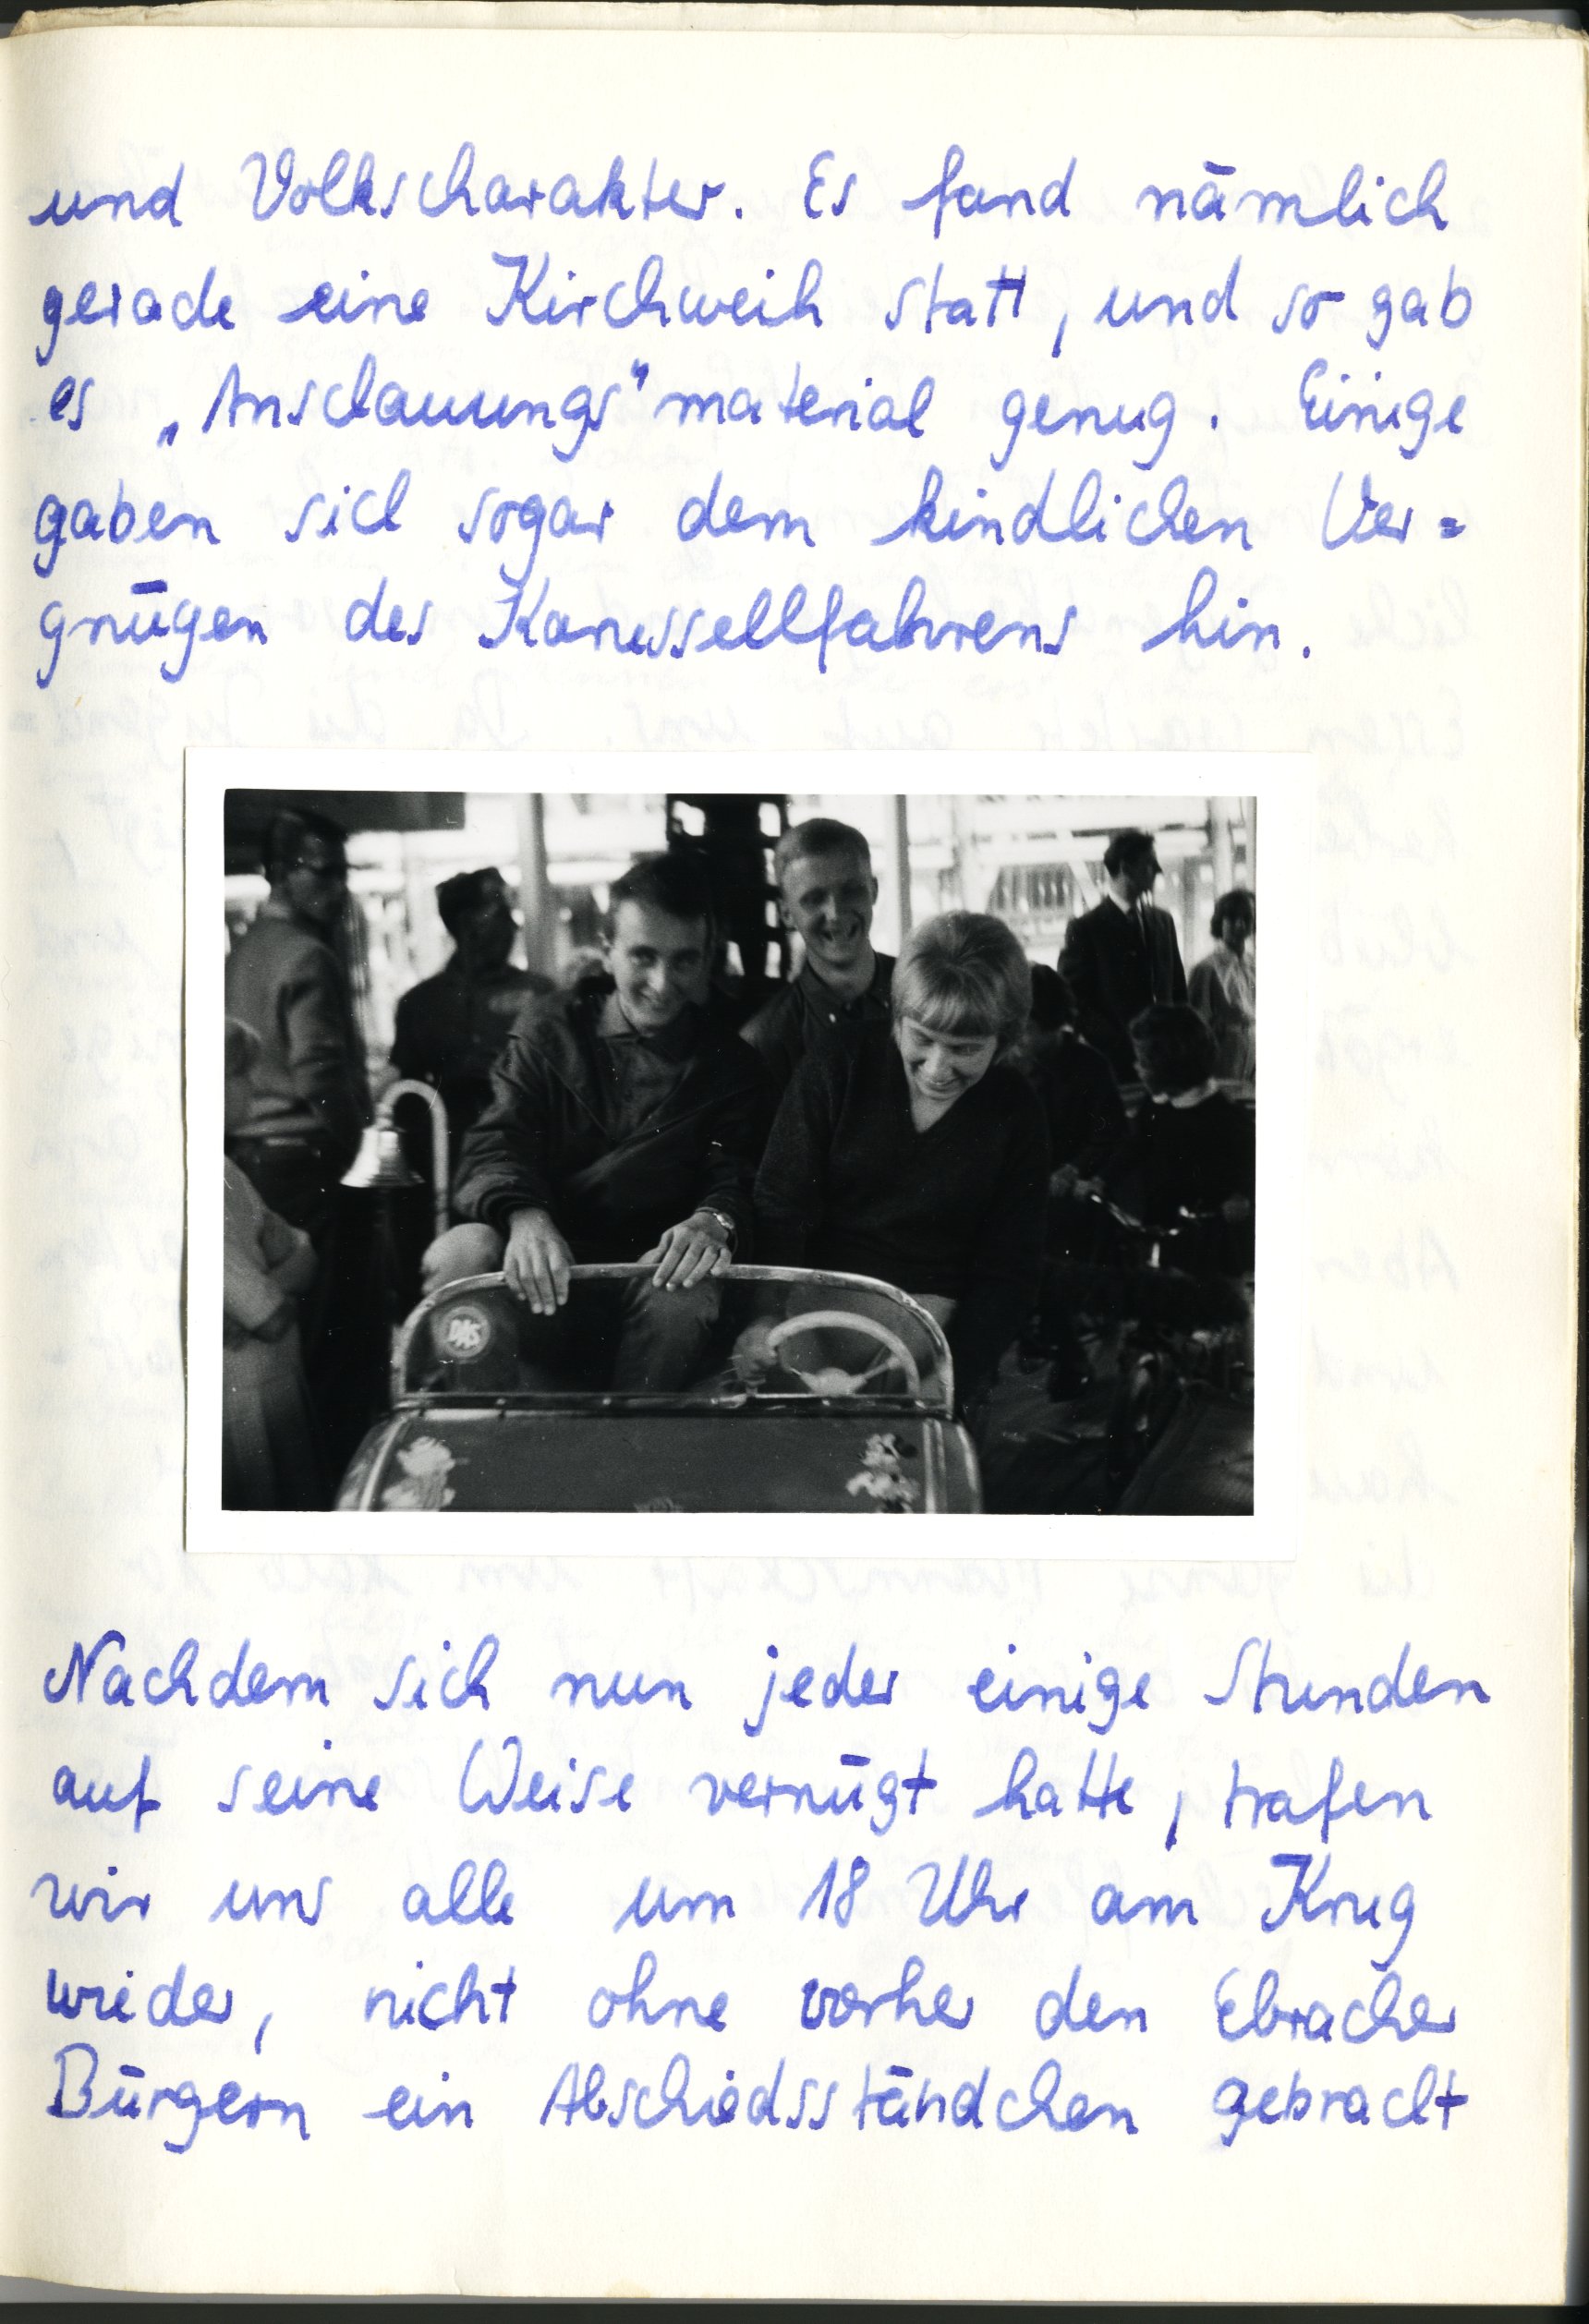 und Volkscharakter. Es fand nämlich
gerade eine Kirchweih statt, und so gab
es „Anschauungs"material genug. Einige
gaben sich sogar dem kindlichen Ver=
gnügen des Karussellfahrens hin.
DAS
Nachdem sich nun jeder einige Stunden
auf seine Weise vernügt hatte, trafen
wir uns alle um 18 Uhr am Krug
wieder, nicht ohne vorher den Ebracher
Bürgern ein Abschiedsständchen gebracht